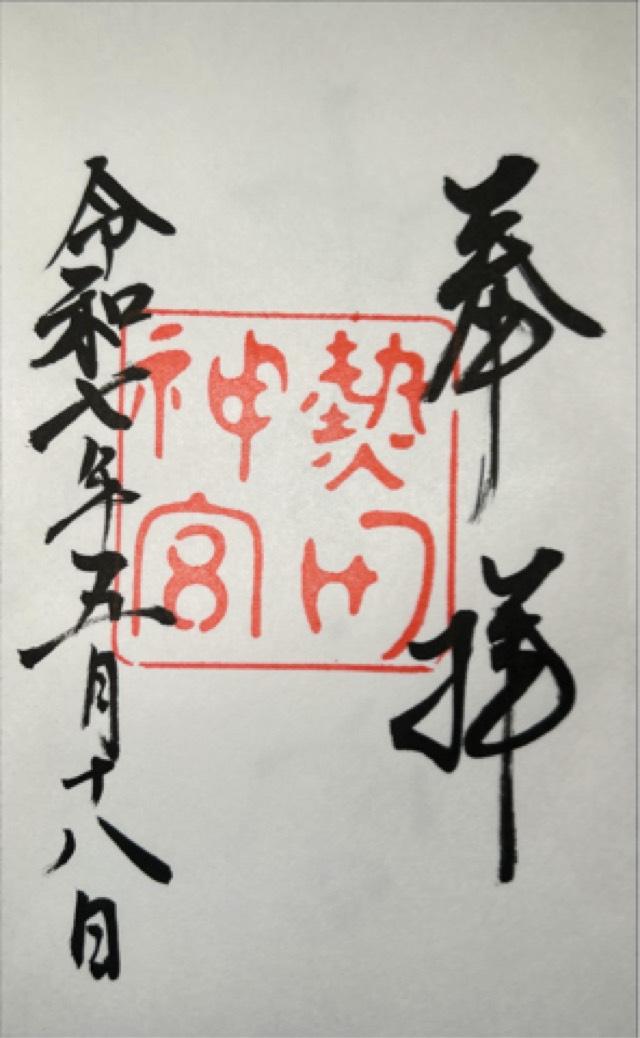 奉拝
熱田
神宮
令和七年五月十八日